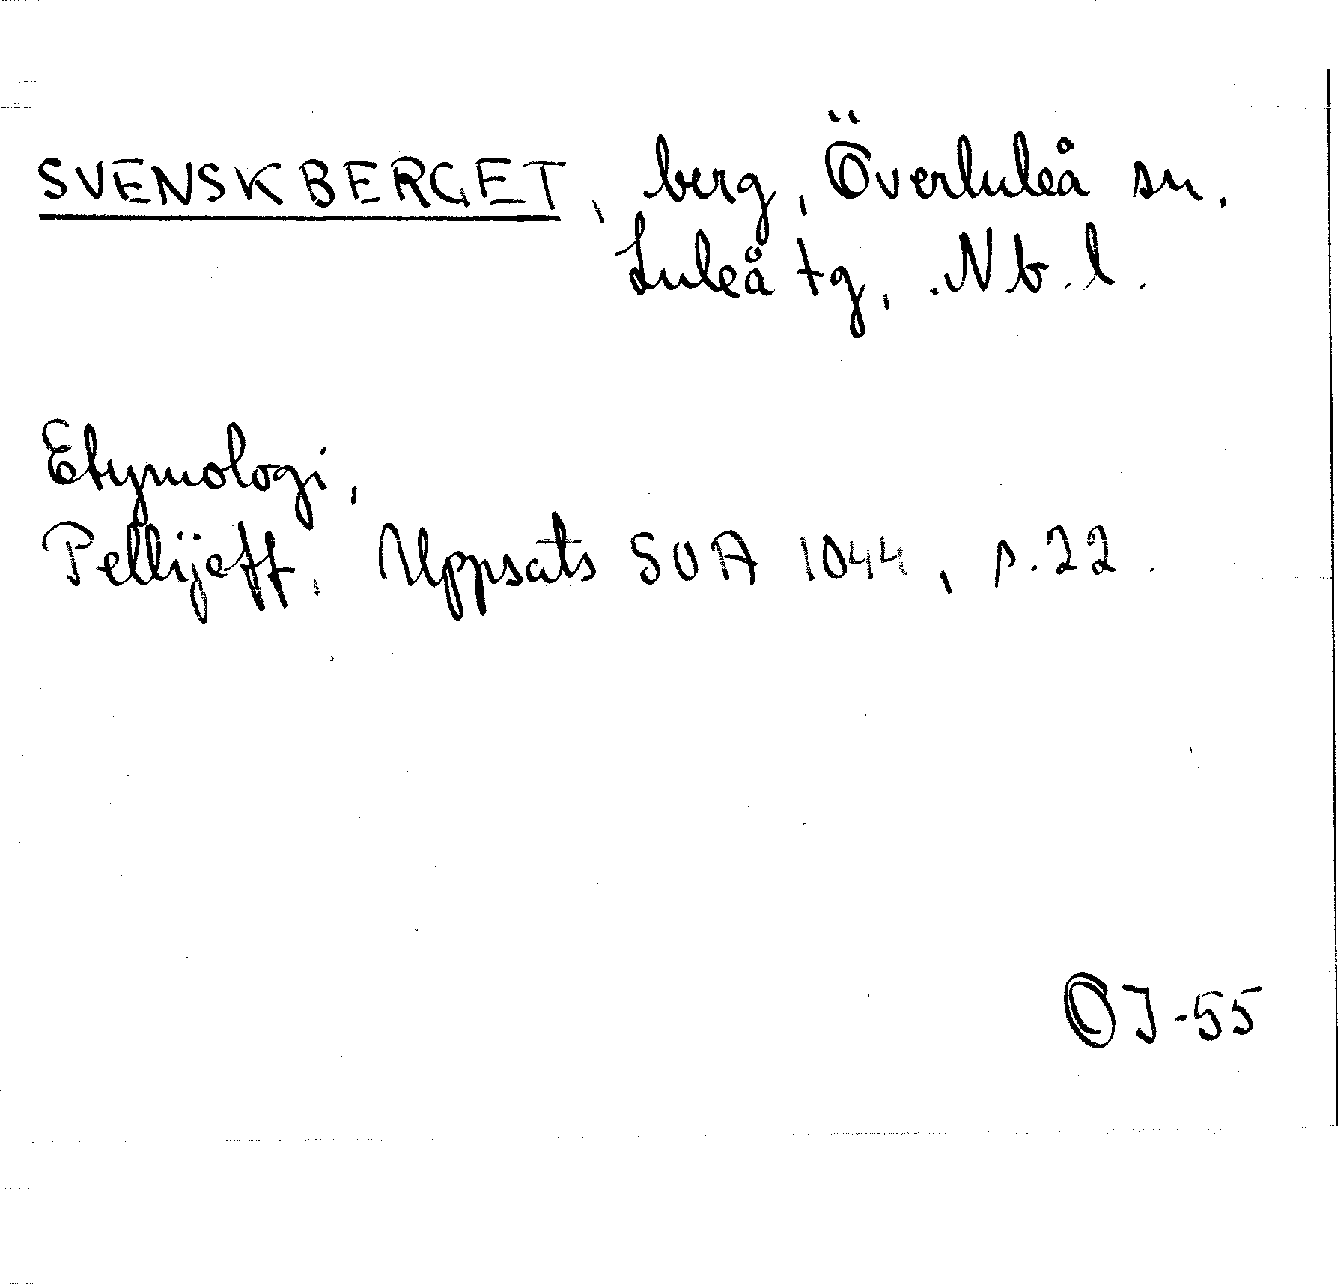 SVENSKBERGET, berg, Överluleå sn.
Luleå tg, Nb.l.
Etymologi,
Pellijeff, Uppsats SOA 1044, s.22.
OJ-55